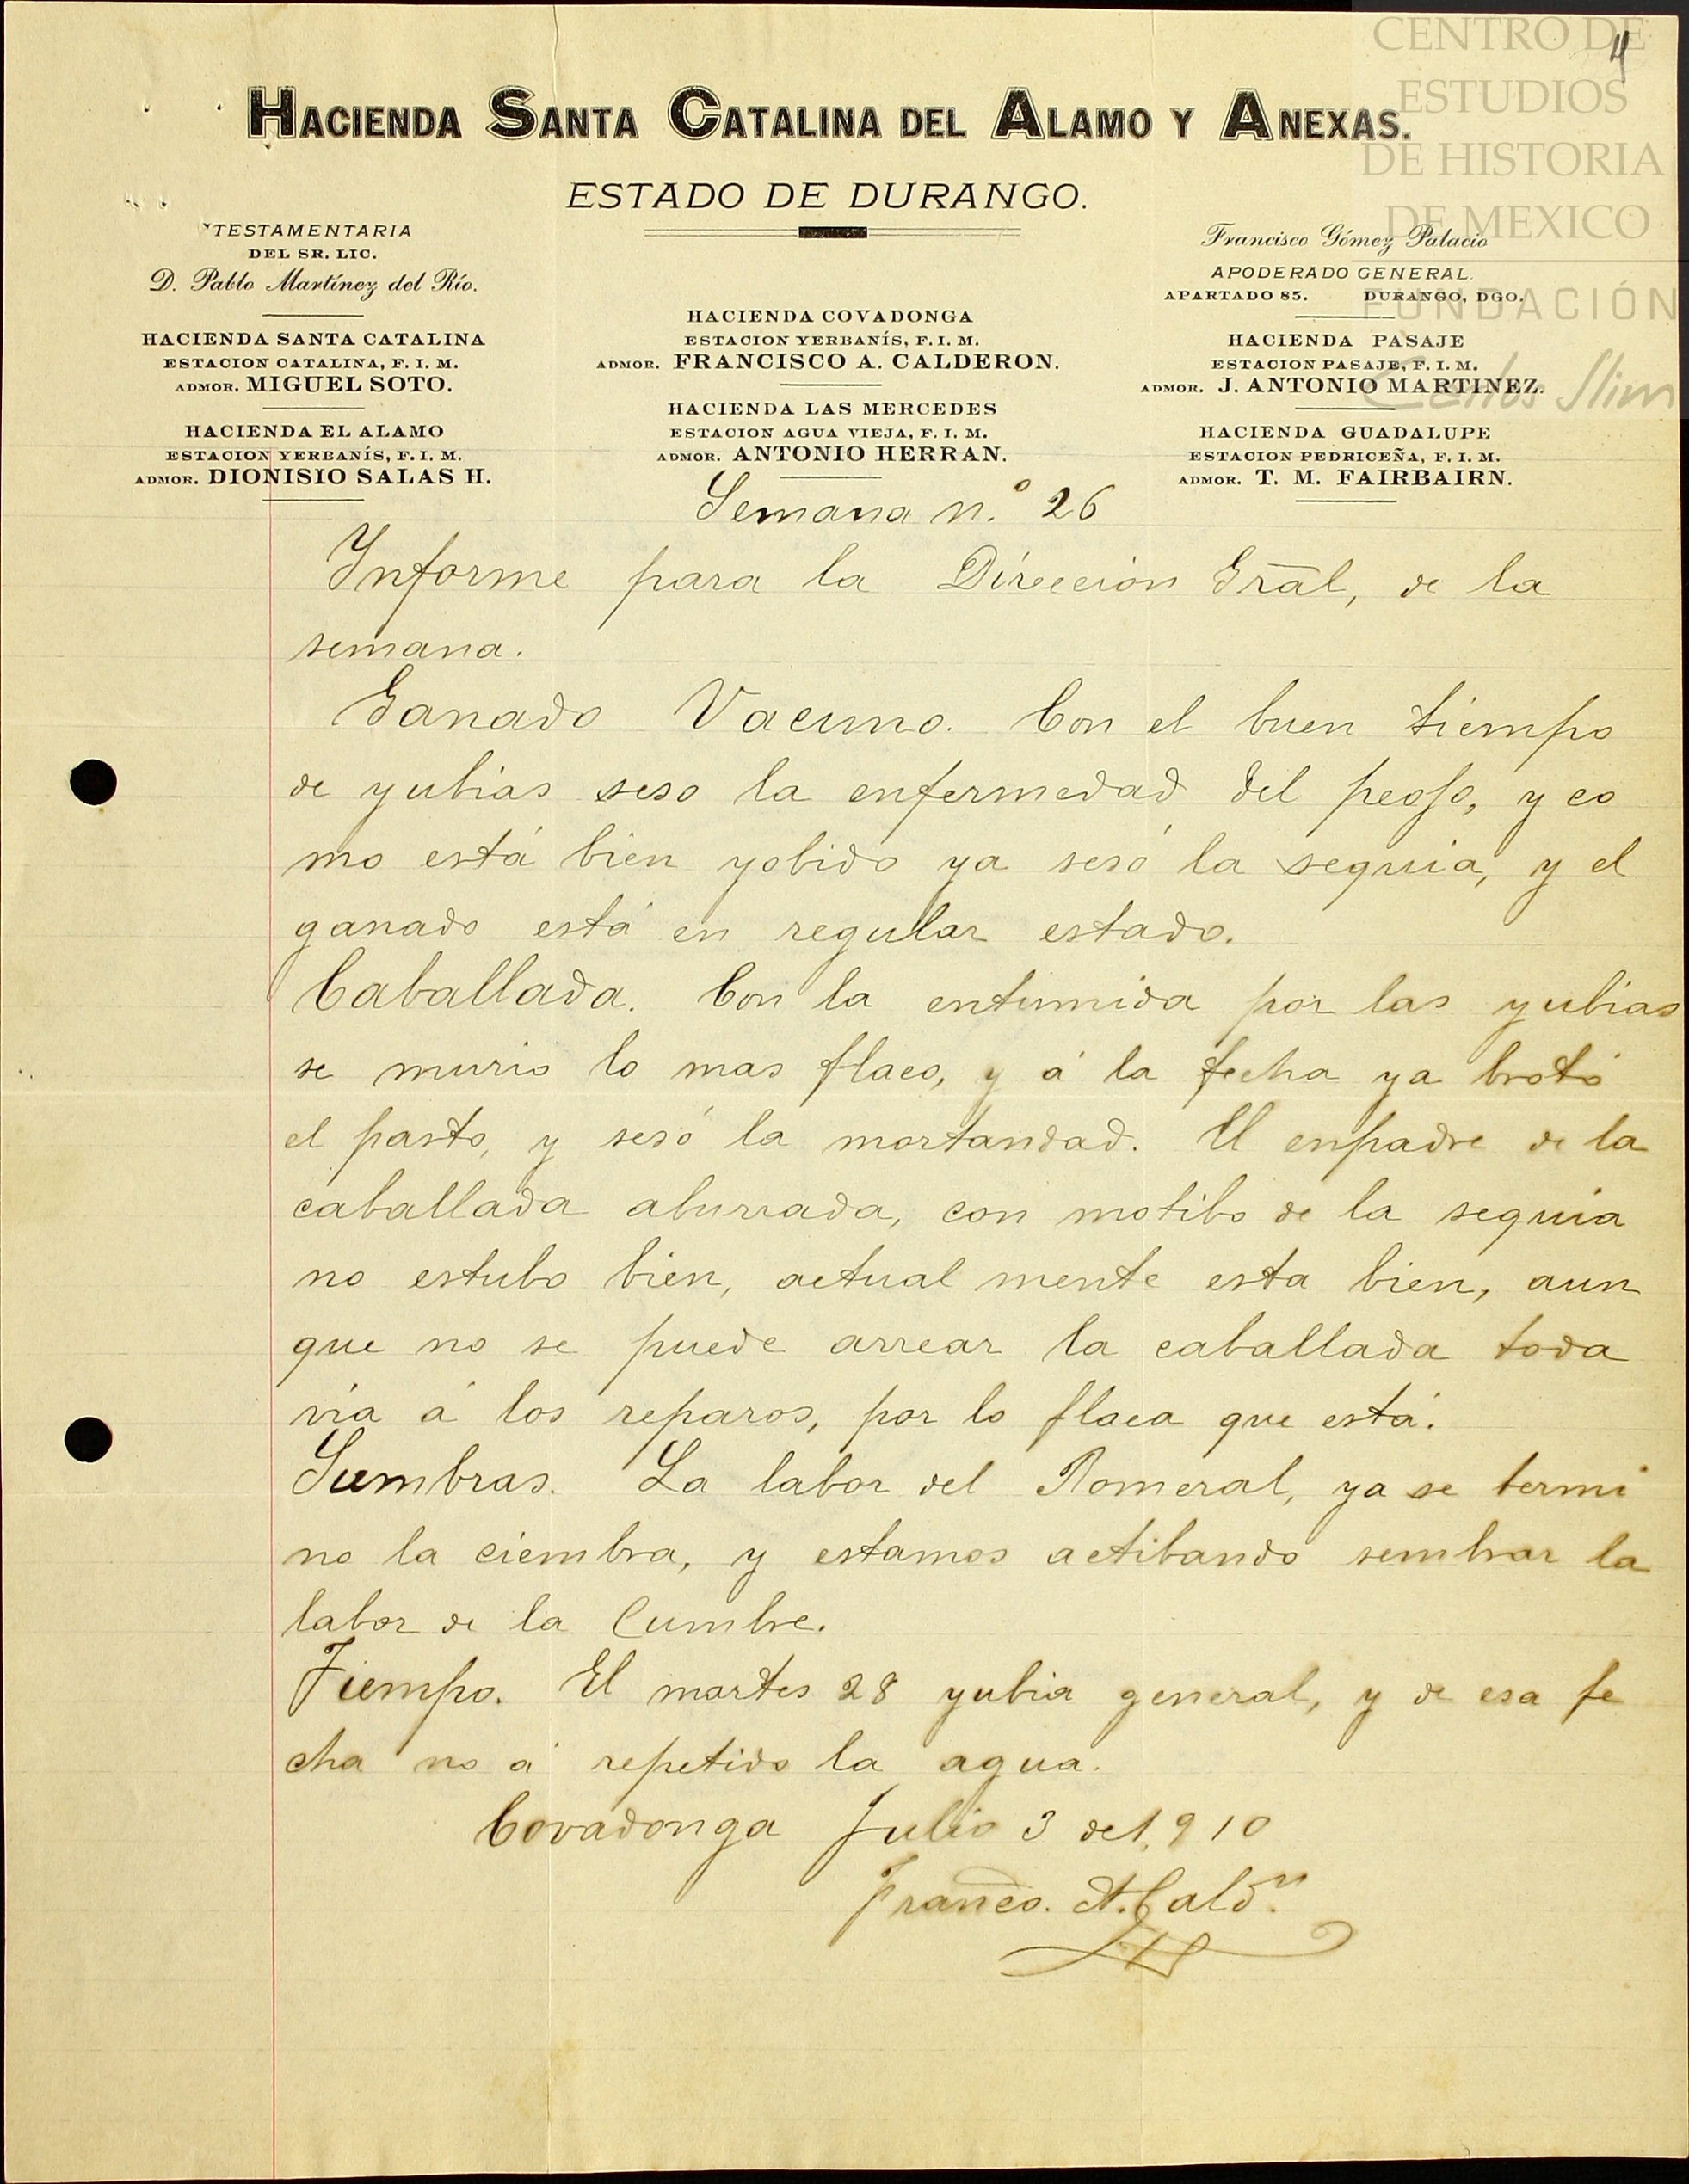 4
CENTRO DE
ESTUDIOS
DE HISTORIA
DE MEXICO
FUNDACIÓN
Carlos Slim
HACIENDA SANTA CATALINA DEL ALAMO Y ANEXAS.
ESTADO DE DURANGO.
TESTAMENTARIA
DEL SR. LIC.
D. Pablo Martínez del Río.
HACIENDA SANTA CATALINA
ESTACION CATALINA, F. I. M.
ADMOR. MIGUEL SOTO.
HACIENDA EL ALAMO
ESTACION YERBANÍS, F. I. M.
ADMOR. DIONISIO SALAS H.
HACIENDA COVADONGA
ESTACION YERBANÍS, F. I. M.
ADMOR. FRANCISCO A. CALDERON.
HACIENDA LAS MERCEDES
ESTACION AGUA VIEJA, F. I. M.
ADMOR. ANTONIO HERRAN.
Francisco Gómez Palacio
APODERADO GENERAL.
APARTADO 85. DURANGO, DGO.
HACIENDA PASAJE
ESTACION PASAJE, F. I. M.
ADMOR. J. ANTONIO MARTINEZ.
HACIENDA GUADALUPE
ESTACION PEDRICEÑA, F. I. M.
ADMOR. T. M. FAIRBAIRN.
Semana n.º 26
Informe para la Direccion Gral, de la
semana.
Ganado Vacuno. Con el buen tiempo
de yubias seso la enfermedad del peojo, y co
mo está bien yobido ya sesó la sequia, y el
ganado está en regular estado.
Caballada. Con la entumida por las yubias
se murio lo mas flaco, y á la fecha ya brotó
el pasto, y sesó la mortandad. El enpadre de la
caballada aburrada, con motibo de la sequia
no estubo bien, actual mente esta bien, aun
que no se puede arrear la caballada toda
via á los reparos, por lo flaca que está.
Sumbras. La labor del Romeral, ya se termi
no la ciembra, y estamos actibando sembrar la
labor de la Cumbre.
Tiempo. El martes 28 yubia general, y de esa fe
cha no á repetido la agua.
Covadonga Julio 3 de 1,910
Franco. A. Caldn.